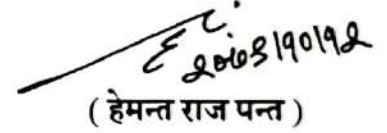 २०७९।१०।१२
( हेमन्त राज पन्त )